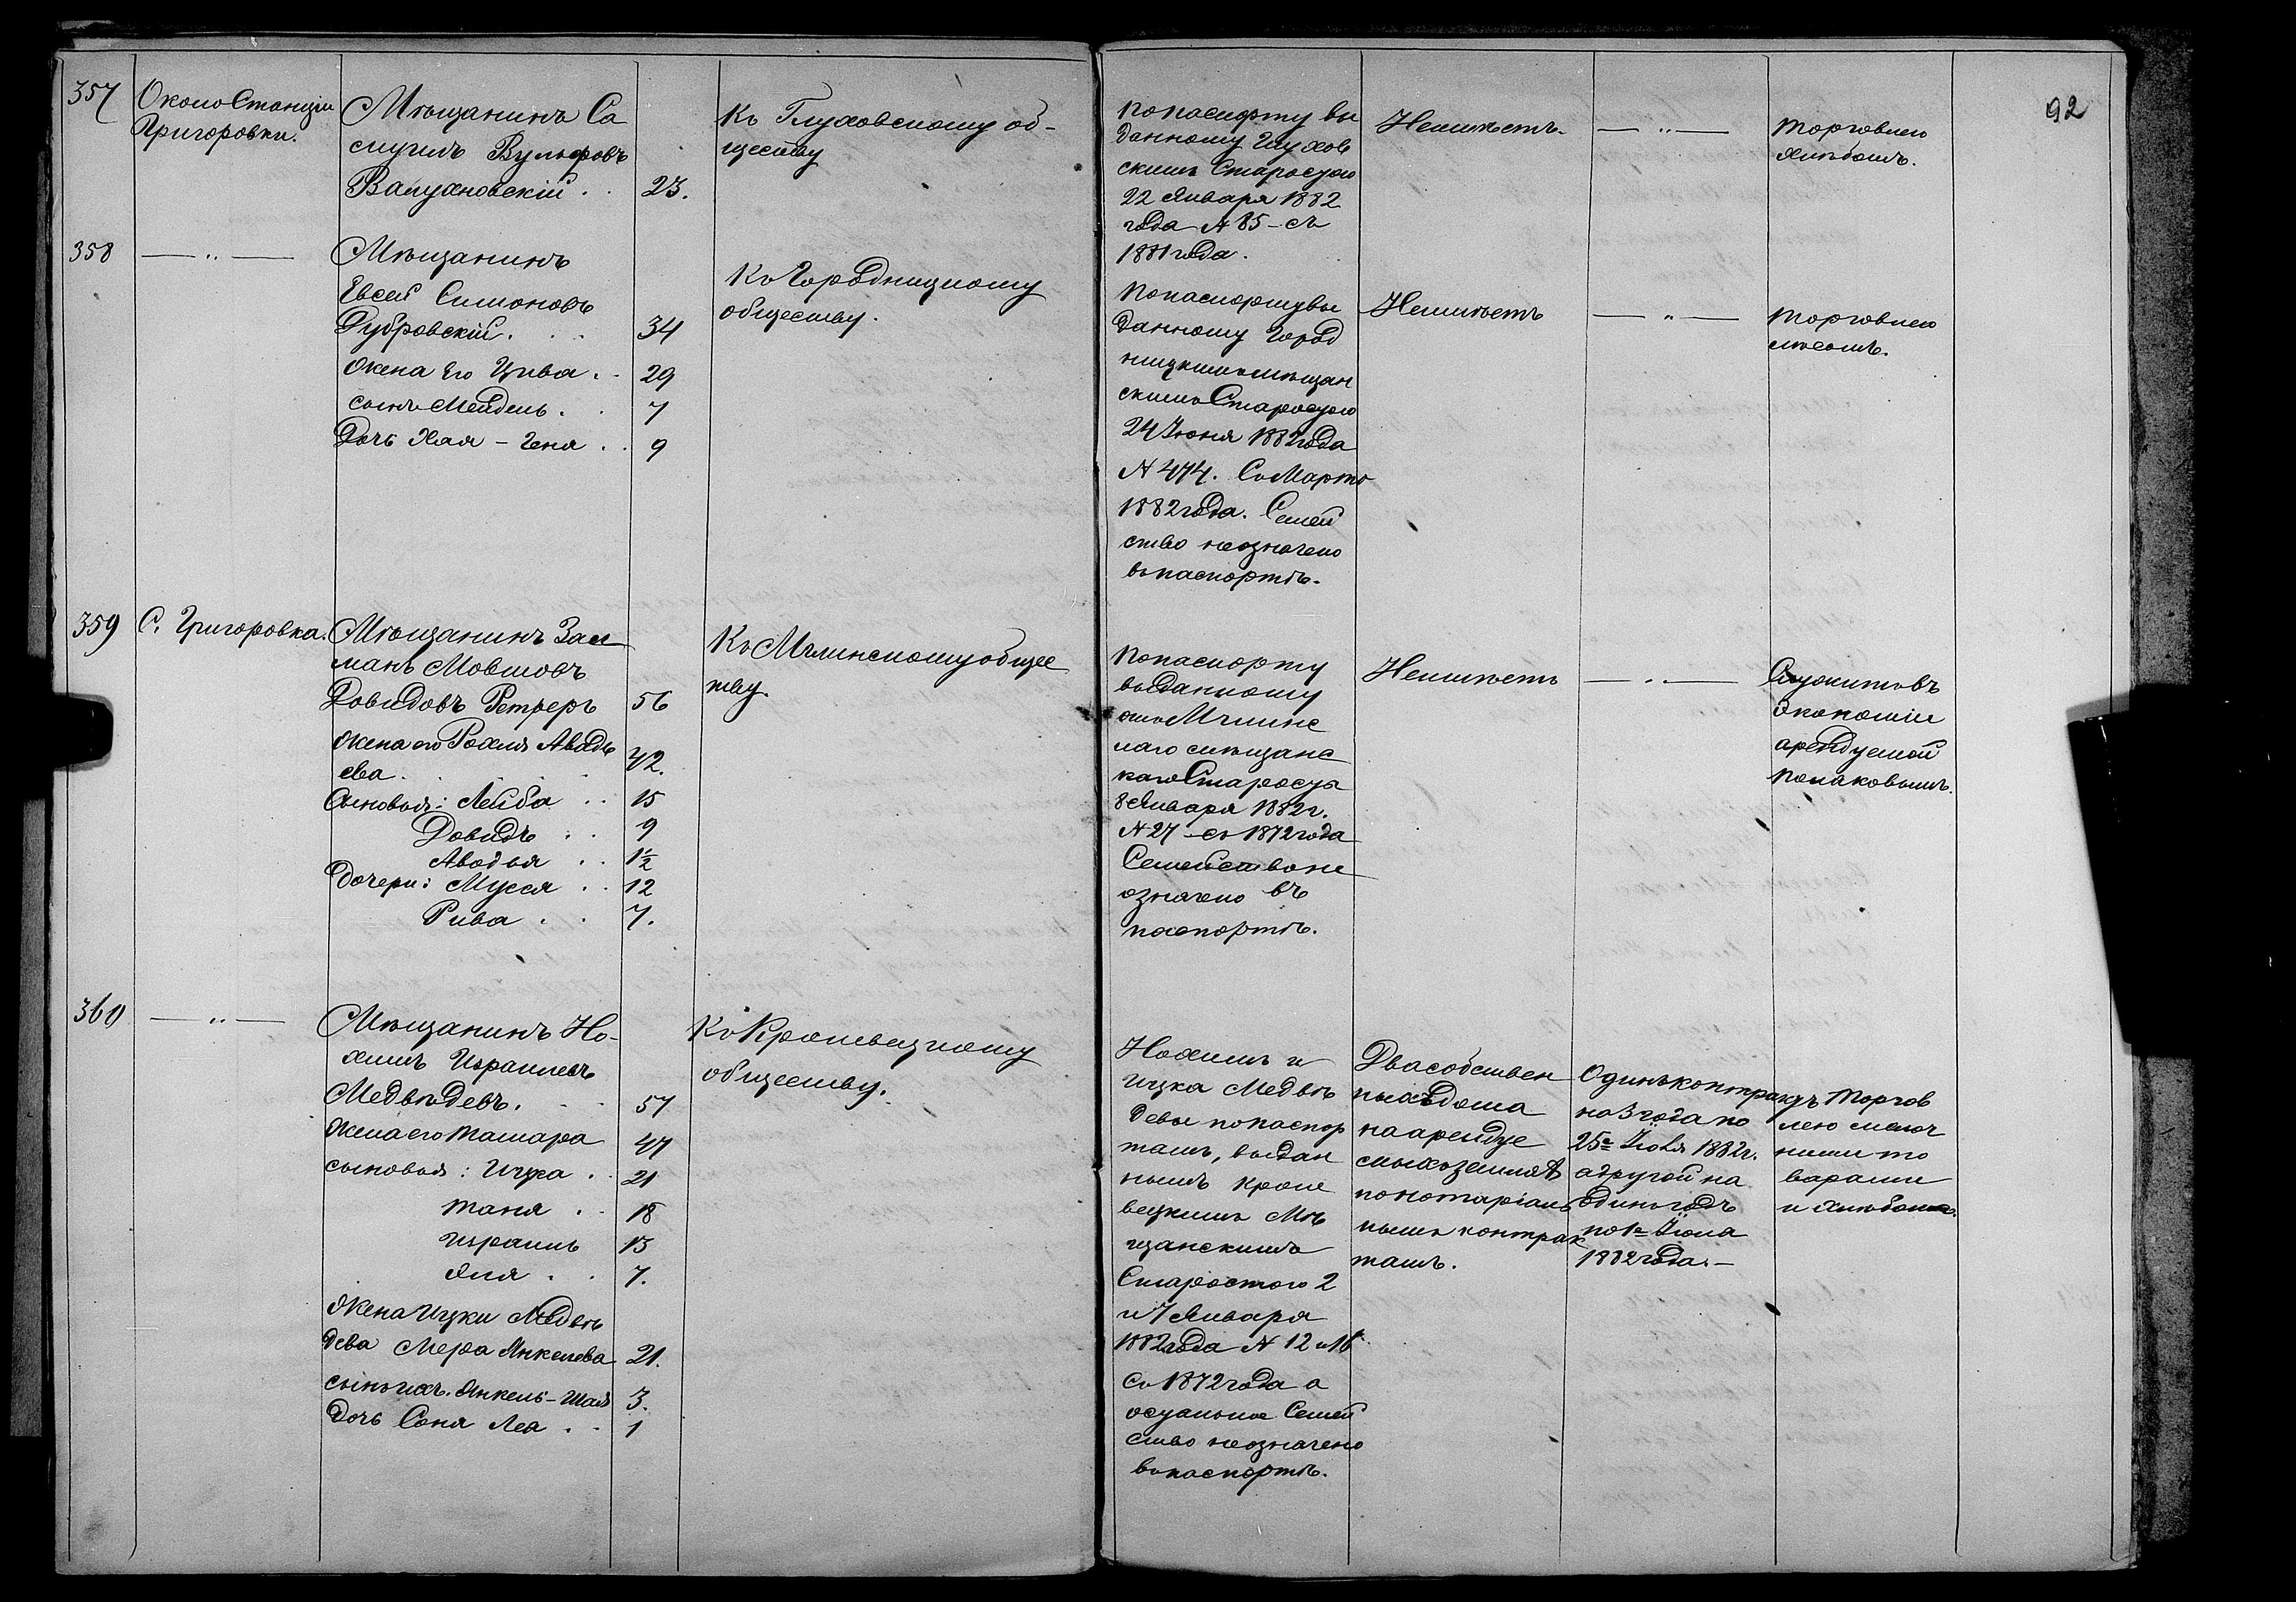 357
Около Станціи
Григоровки.
Мѣщанинъ Са
муилъ Вульфовъ
Валухновскій . . 23.
Къ Глуховскому об-
ществу
По паспорту вы
данному Глухов
скимъ Старостою
22 Января 1882
года N 85 - съ
1881 года.
Неимѣетъ.
— „ —
Торговлею
хлѣбомъ.
92
358
— „ —
Мѣщанинъ
Евсей Симоновъ
Дубровскій . . . 34
Жена его Цива . . 29
сынъ Мендель . . 7
Дочь Хая - Геня . . 9
Къ Городницкому
обществу.
По паспорту вы
данному Город
ницкимъ мѣщан
скимъ Старостою
24 Іюня 1882 года
N 474. Съ Марта
1882 года. Семей
ство неозначено
въ паспортѣ.
Неимѣетъ
— „ —
Торговлею
лѣсомъ.
359
С. Григоровка.
Мѣщанинъ Зал
манъ Мовшовъ
Довидовъ Ретреръ 56
Жена его Рохля Авадь
ева . 42.
Сыновья: Лейба . . 15
Довидъ . . 9
Авадья . . 1½
Дочери: Мусся . . 12
Рива . . 7.
Къ Мглинскому общес
тву.
По паспорту
выданному
отъ Мглинс
каго мѣщанс
каго Старосты
8 Января 1882 г.
N 27 - съ 1872 года
Семейство не
означено въ
паспортѣ.
Неимѣетъ
— „ —
Служитъ въ
Экономіи
арендуемой
Полаковымъ.
360
— „ —
Мѣщанинъ Но-
химъ Израилевъ
Медвѣдевъ. . . 57
Жена его Тамара 47
сыновья: Ицка . . 21
Таня . . 18
Израиль 13
Яня . . 7.
Жена Ицки Медвѣ
дева Мера Янкелева 21.
сынъ ихъ. Янкель-Шая 3.
Дочь Соня Леа . . 1
Къ Кролевецкому
обществу.
Нохимъ и
Ицка Медвѣ
девы по паспор
тамъ, выдан
нымъ Кроле
вецкимъ Мѣ
щанскимъ
Старостою 2
и 7 Января
1882 года N 12 и 16
Съ 1872 года а
остальное Семей
ство неозначено
въ паспортѣ.
Два собствен
ныхъ дома
на аренду
емыхъ земляхъ
по нотаріаль
нымъ контрак
тамъ.
Одинъ контрактъ
на 3 года по
25е Іюля 1882 г.
а другой на
одинъ годъ
по 1е Іюля
1882 года. —
Торгов
лею мелоч
ными то
варами
и хлѣбомъ.